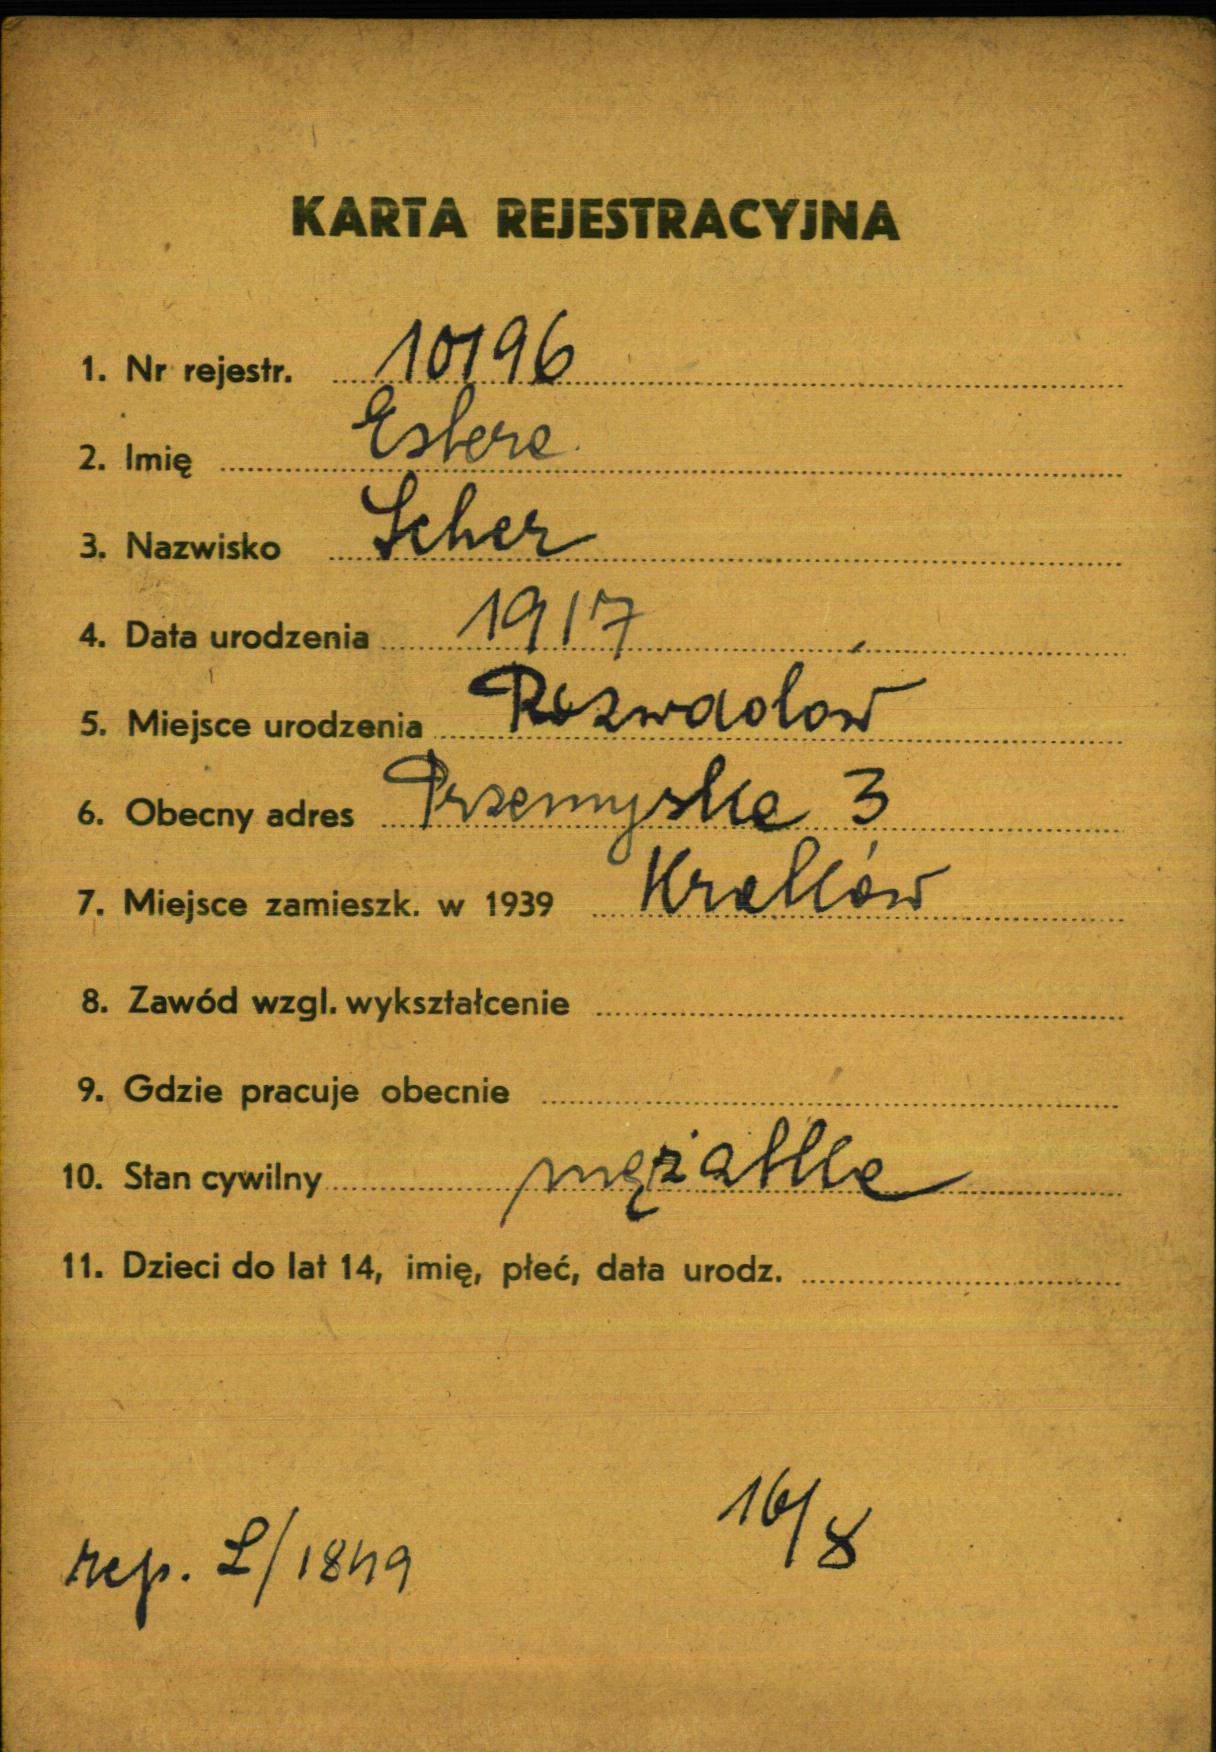 KARTA REJESTRACYJNA
1. Nr rejestr. 10196
2. Imię Estera
3. Nazwisko Scher
4. Data urodzenia 1917
5. Miejsce urodzenia Rozwadów
6. Obecny adres Przemyska 3
7. Miejsce zamieszk. w 1939 Kraków
8. Zawód wzgl. wykształcenie
9. Gdzie pracuje obecnie
10. Stan cywilny mężatka
11. Dzieci do lat 14, imię, płeć, data urodz.
16/8
rep. L/1849